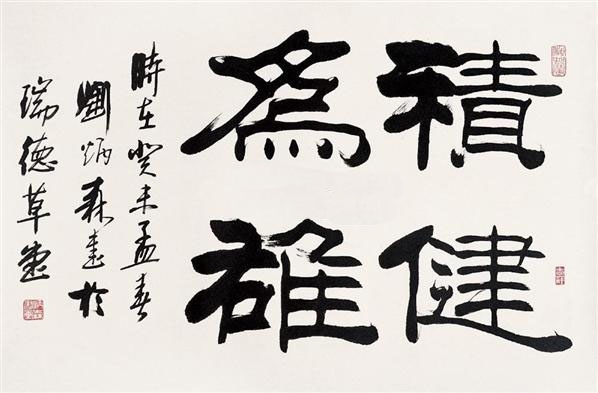 積健
為雄
時在癸未孟春
劉炳森書於
瑞德草堂